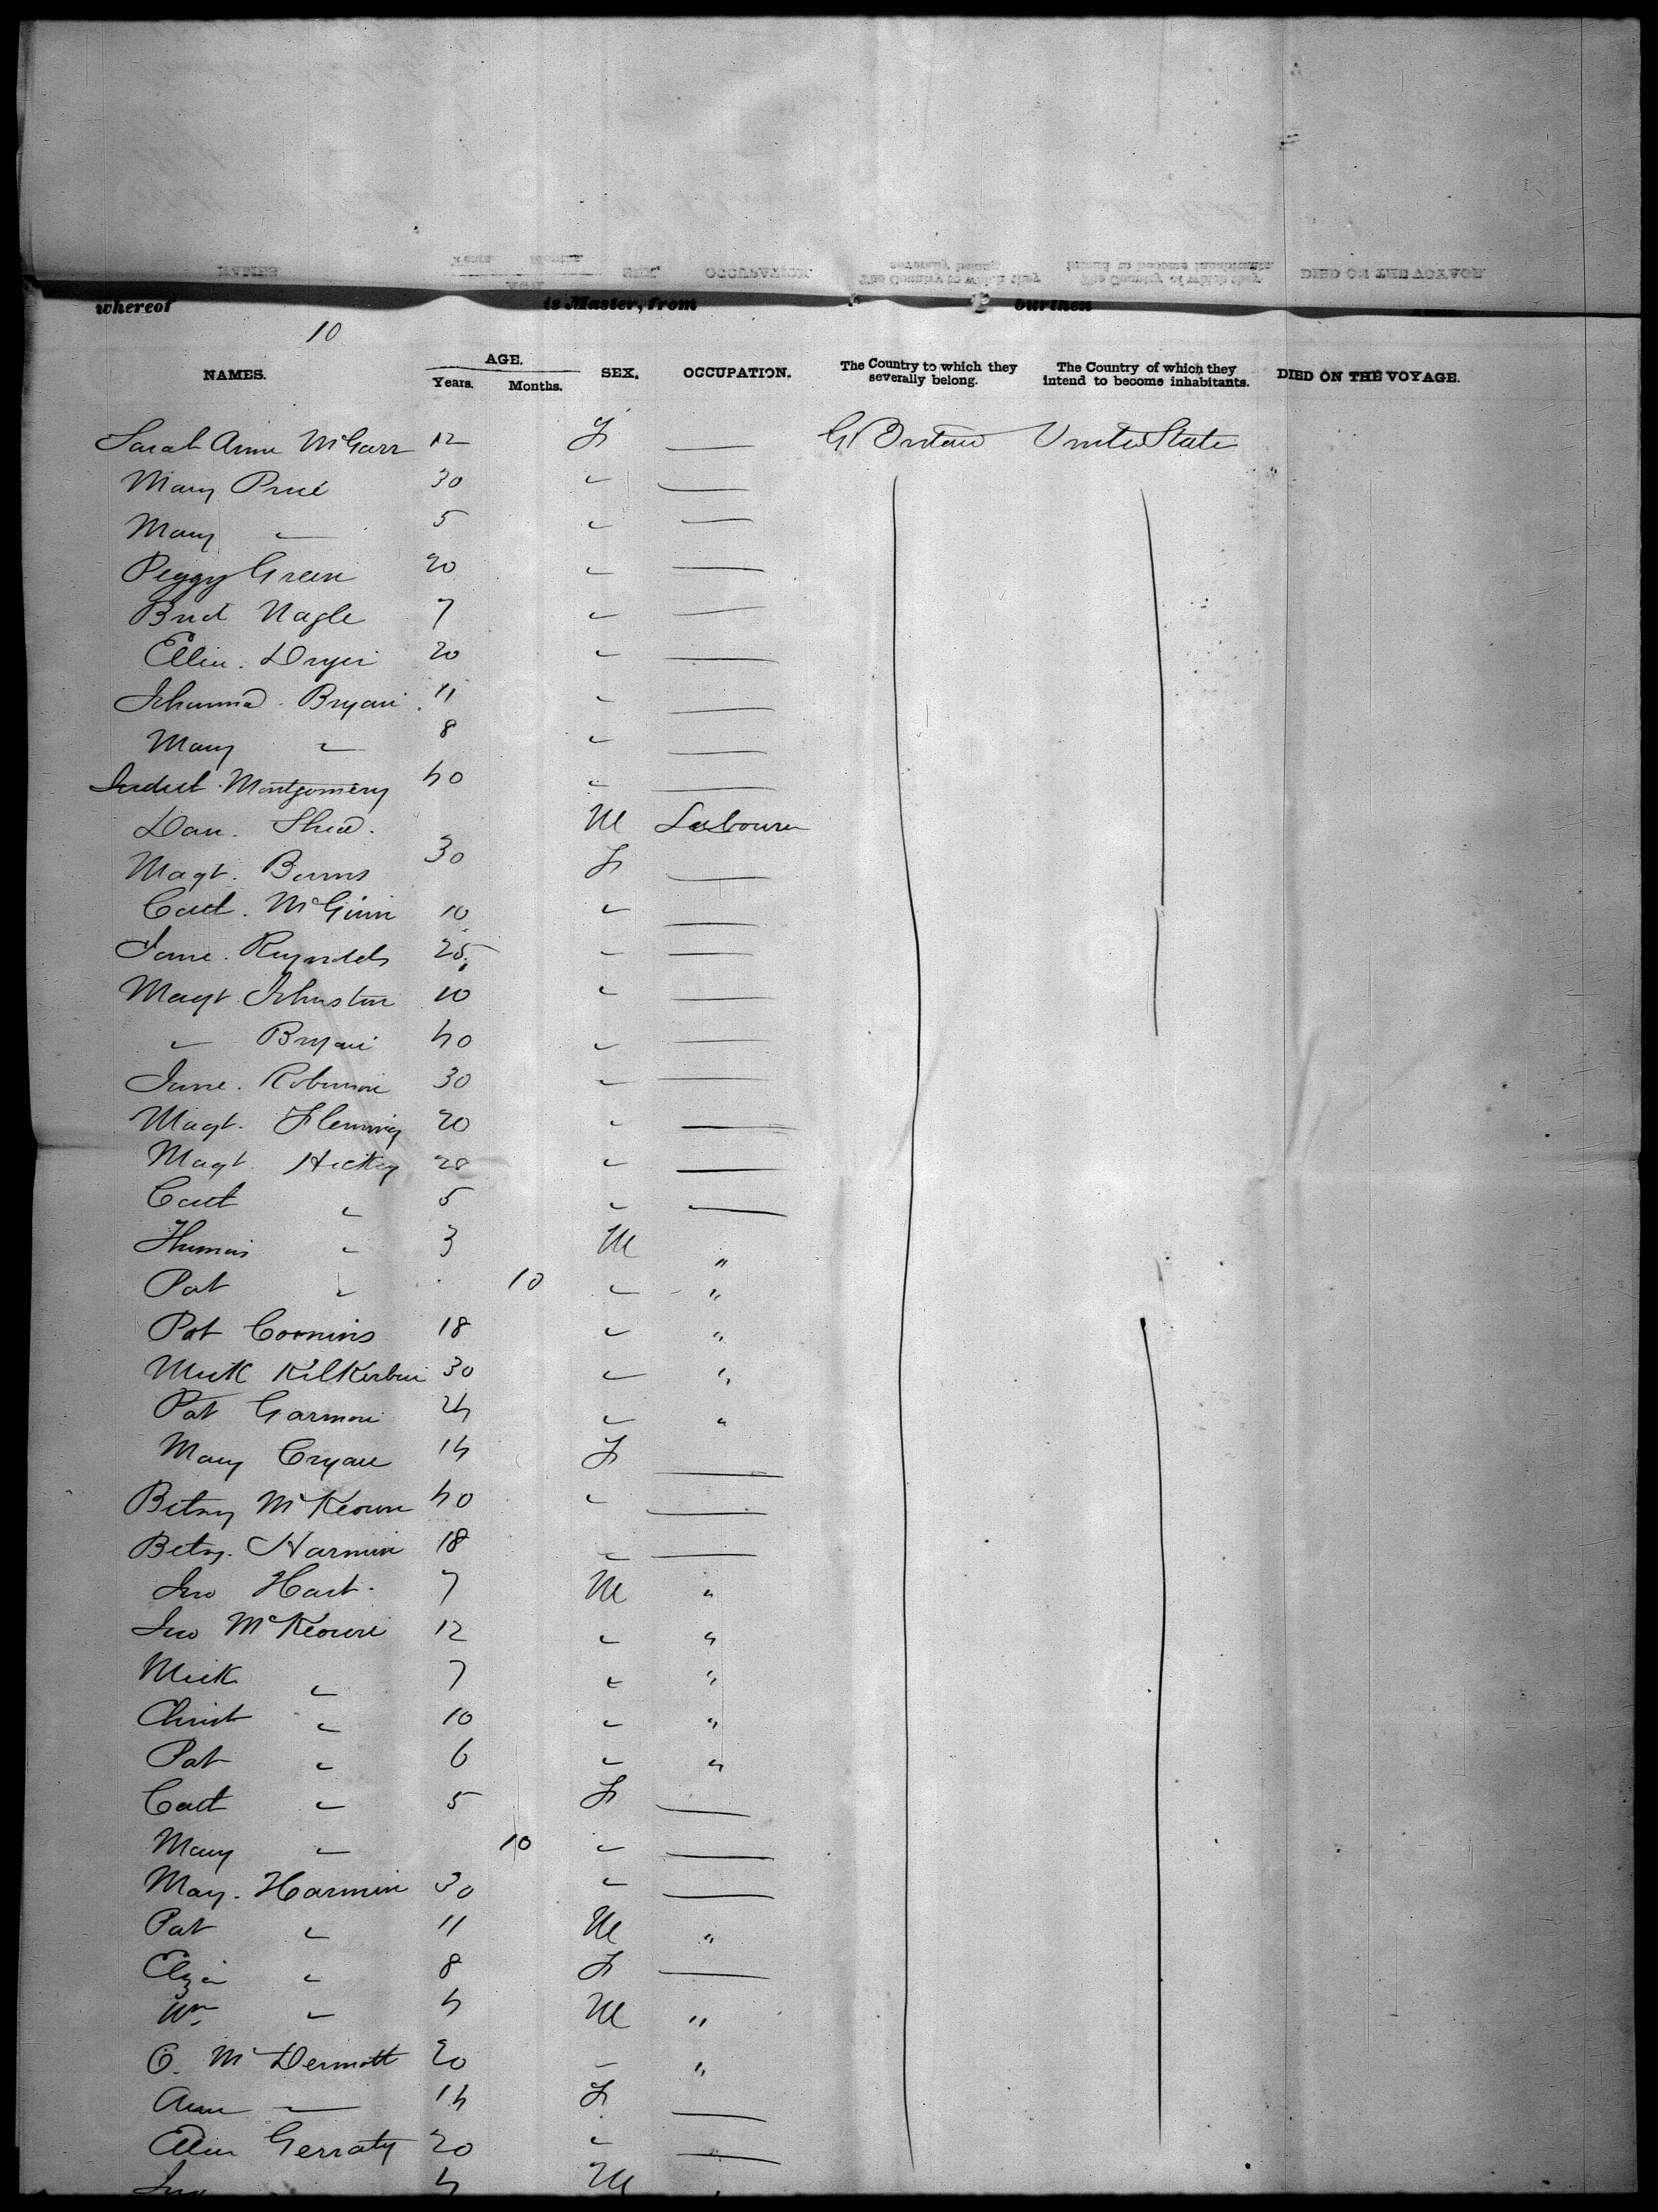 whereof is Master, from burthen
10
NAMES. AGE. Years. Months. SEX. OCCUPATION. The Country to which they severally belong. The Country of which they intend to become inhabitants. DIED ON THE VOYAGE.
Sarah Anne McGarr 12 F — Gt Britain United State
Mary Price 30 " —
Mary " 5 " —
Peggy Green 20 " —
Brid Nagle 7 " —
Ellen Dryer 20 " —
Johanna Bryan 11 " —
Mary " 8 " —
Montgomery 40 " —
Dan. Shea. M Labourer
Magt. Burns 30 F —
Cath. McGinn 10 " —
Jane. Reynolds 25 " —
Magt. Johnston 10 " —
" Bryan 40 " —
Jane. Robinson 30 " —
Magt. Fleming 20 " —
Magt. Hickey 28 " —
Cath " 5 " —
Thomas " 3 M "
Pat " 10 " "
Pat Commins 18 " "
Mick 30 " "
Pat Garmon 24 " "
Mary Cryan 14 F —
Betsy McKeown 40 " —
Betsy. Harmin 18 " —
Jno Hart. 7 M "
Jno McKeown 12 " "
Mick " 7 " "
Christ " 10 " "
Pat " 6 " "
Cath " 5 F —
Mary " 10 " —
May. Harmin 30 " —
Pat " 11 M "
Eliza " 8 F —
Wm " 4 M "
O. McDermott 20 " "
Ann " 14 F —
Ellen Gerraty 20 " —
Jno 4 M "